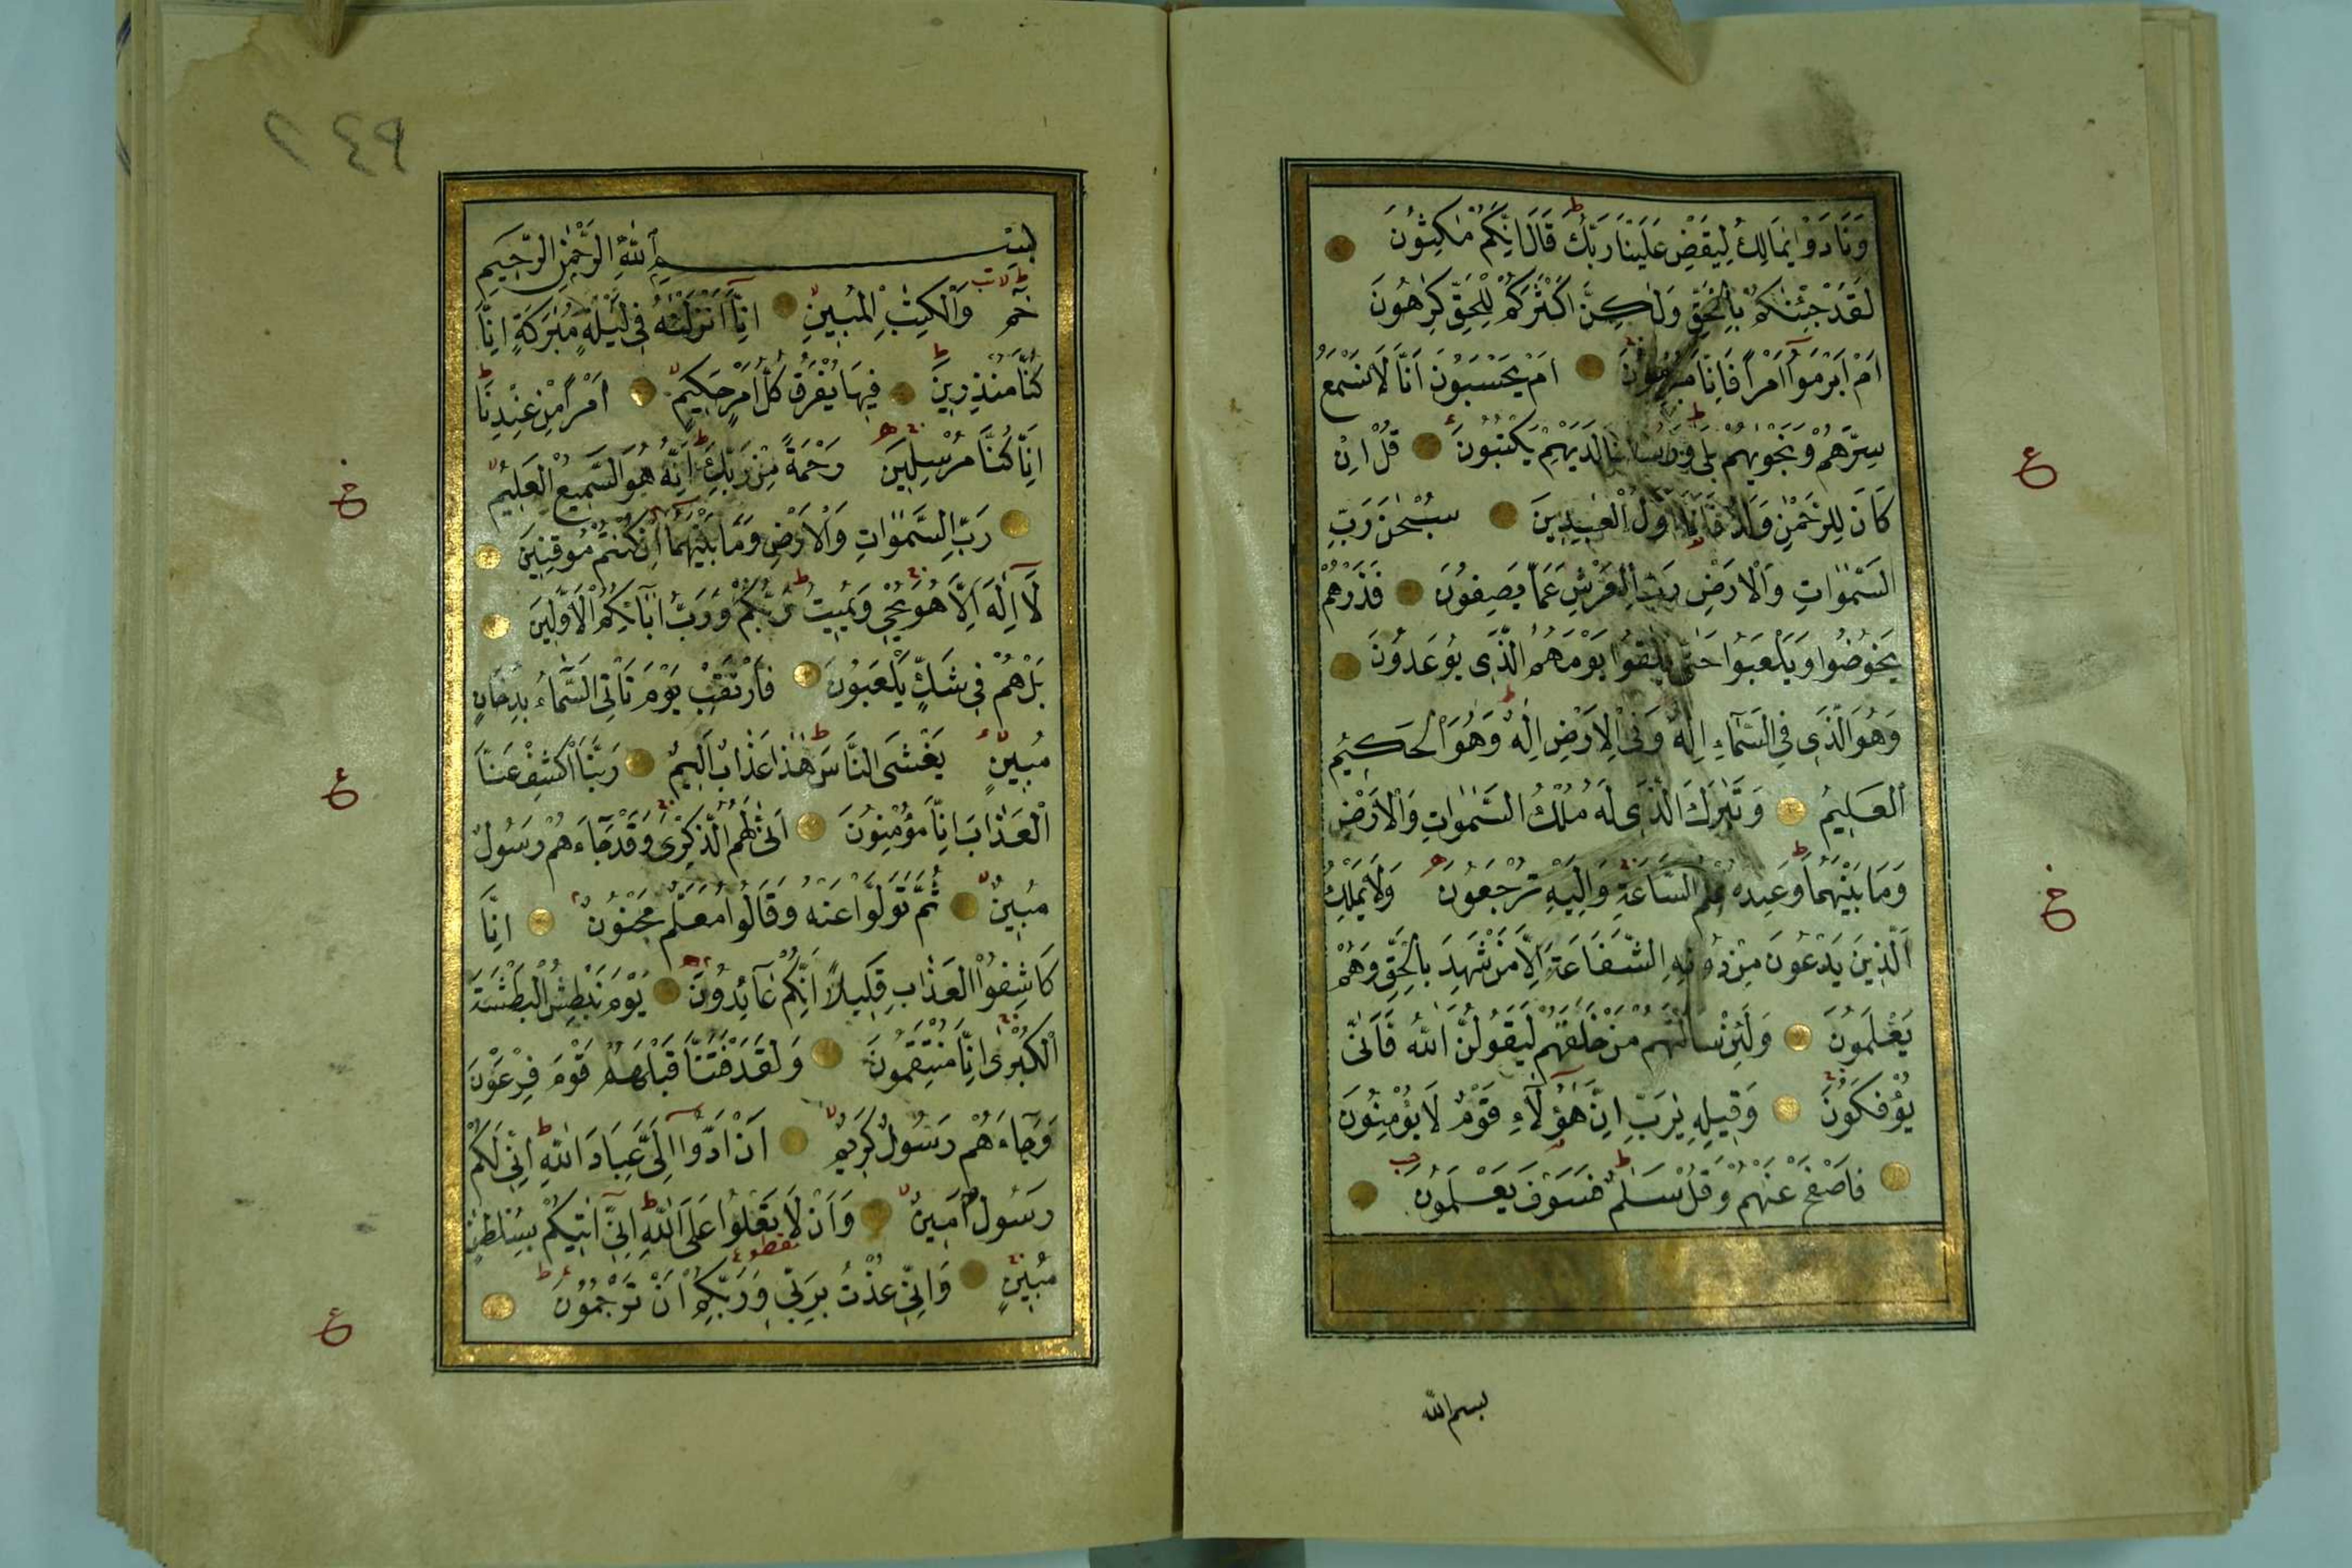 وَنَادَوْا يٰمَالِكُ لِيَقْضِ عَلَيْنَا رَبُّكَ قَالَ اِنَّكُمْ مٰكِثُونَ
لَقَدْ جِئْنٰكُمْ بِالْحَقِّ وَلٰكِنَّ اَكْثَرَكُمْ لِلْحَقِّ كٰرِهُونَ
اَمْ اَبْرَمُوٓا اَمْرًا فَاِنَّا مُبْرِمُونَ اَمْ يَحْسَبُونَ اَنَّا لَا نَسْمَعُ
سِرَّهُمْ وَنَجْوٰيهُمْ بَلٰى وَرُسُلُنَا لَدَيْهِمْ يَكْتُبُونَ قُلْ اِنْ
كَانَ لِلرَّحْمٰنِ وَلَدٌ فَاَنَا اَوَّلُ الْعٰبِدِينَ سُبْحٰنَ رَبِّ
السَّمٰوَاتِ وَالْاَرْضِ رَبِّ الْعَرْشِ عَمَّا يَصِفُونَ فَذَرْهُمْ
يَخُوضُوا وَيَلْعَبُوا حَتّٰى يُلٰقُوا يَوْمَهُمُ الَّذِى يُوعَدُونَ
وَهُوَ الَّذِى فِى السَّمَآءِ اِلٰهٌ وَفِى الْاَرْضِ اِلٰهٌ وَهُوَ الْحَكِيمُ
الْعَلِيمُ وَتَبٰرَكَ الَّذِى لَهُ مُلْكُ السَّمٰوَاتِ وَالْاَرْضِ
وَمَا بَيْنَهُمَا وَعِنْدَهُ عِلْمُ السَّاعَةِ وَاِلَيْهِ تُرْجَعُونَ وَلَا يَمْلِكُ
الَّذِينَ يَدْعُونَ مِنْ دُونِهِ الشَّفَاعَةَ اِلَّا مَنْ شَهِدَ بِالْحَقِّ وَهُمْ
يَعْلَمُونَ وَلَئِنْ سَاَلْتَهُمْ مَنْ خَلَقَهُمْ لَيَقُولُنَّ اللّٰهُ فَاَنّٰى
يُؤْفَكُونَ وَقِيلِهِ يٰرَبِّ اِنَّ هٰٓؤُلَآءِ قَوْمٌ لَا يُؤْمِنُونَ
فَاصْفَحْ عَنْهُمْ وَقُلْ سَلٰمٌ فَسَوْفَ يَعْلَمُونَ
بسم الله
٢٤٩
بِسْمِ اللّٰهِ الرَّحْمٰنِ الرَّحِيمِ
حٰمٓ وَالْكِتٰبِ الْمُبِينِ اِنَّآ اَنْزَلْنٰهُ فِى لَيْلَةٍ مُبٰرَكَةٍ اِنَّا
كُنَّا مُنْذِرِينَ فِيهَا يُفْرَقُ كُلُّ اَمْرٍ حَكِيمٍ اَمْرًا مِنْ عِنْدِنَا
اِنَّا كُنَّا مُرْسِلِينَ رَحْمَةً مِنْ رَبِّكَ اِنَّهُ هُوَ السَّمِيعُ الْعَلِيمُ
رَبِّ السَّمٰوَاتِ وَالْاَرْضِ وَمَا بَيْنَهُمَا اِنْ كُنْتُمْ مُوقِنِينَ
لَآ اِلٰهَ اِلَّا هُوَ يُحْىٖ وَيُمِيتُ رَبُّكُمْ وَرَبُّ اٰبَآئِكُمُ الْاَوَّلِينَ
بَلْ هُمْ فِى شَكٍّ يَلْعَبُونَ فَارْتَقِبْ يَوْمَ تَاْتِى السَّمَآءُ بِدُخَانٍ
مُبِينٍ يَغْشَى النَّاسَ هٰذَا عَذَابٌ اَلِيمٌ رَبَّنَا اكْشِفْ عَنَّا
الْعَذَابَ اِنَّا مُؤْمِنُونَ اَنّٰى لَهُمُ الذِّكْرٰى وَقَدْ جَآءَهُمْ رَسُولٌ
مُبِينٌ ثُمَّ تَوَلَّوْا عَنْهُ وَقَالُوا مُعَلَّمٌ مَجْنُونٌ اِنَّا
كَاشِفُوا الْعَذَابِ قَلِيلًا اِنَّكُمْ عَآئِدُونَ يَوْمَ نَبْطِشُ الْبَطْشَةَ
الْكُبْرٰى اِنَّا مُنْتَقِمُونَ وَلَقَدْ فَتَنَّا قَبْلَهُمْ قَوْمَ فِرْعَوْنَ
وَجَآءَهُمْ رَسُولٌ كَرِيمٌ اَنْ اَدُّوٓا اِلَىَّ عِبَادَ اللّٰهِ اِنِّى لَكُمْ
رَسُولٌ اَمِينٌ وَاَنْ لَا تَعْلُوا عَلَى اللّٰهِ اِنِّىٓ اٰتِيكُمْ بِسُلْطٰنٍ
مُبِينٍ وَاِنِّى عُذْتُ بِرَبِّى وَرَبِّكُمْ اَنْ تَرْجُمُونَ